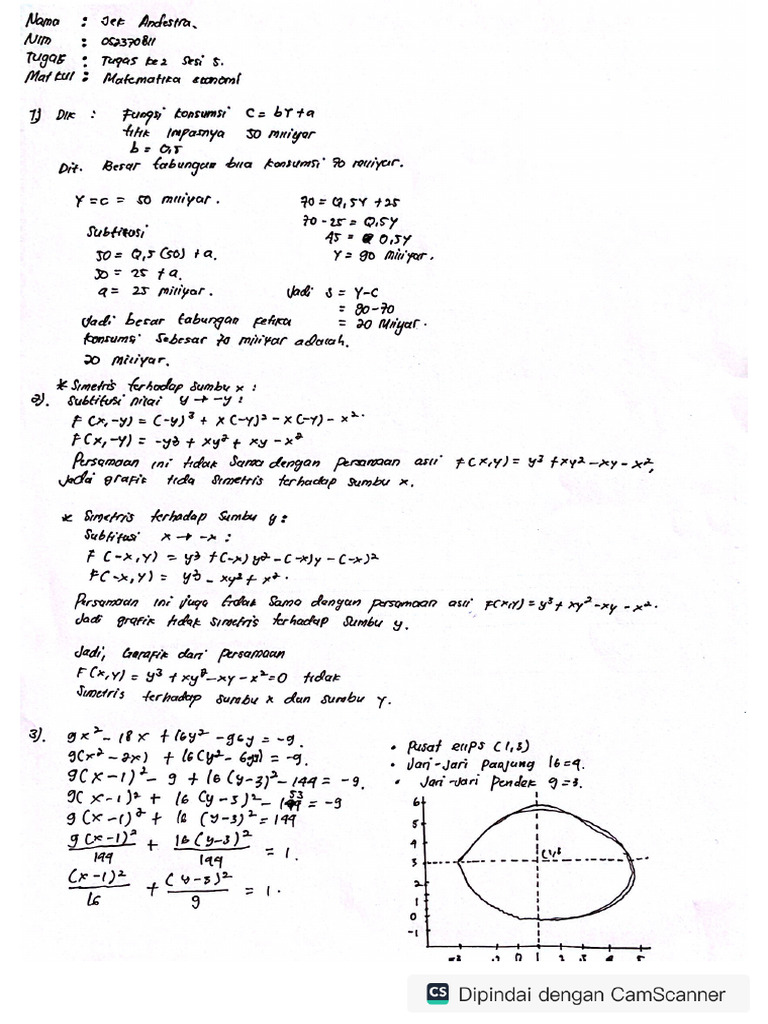 Nama : Jek Andestra.
Nim : 052370811
Tugas : Tugas ke 2 Sesi 5.
Matkul : Matematika ekonomi
1) Dik : Fungsi konsumsi C = bY + a
titik impasnya 50 miliyar
b = 0,5
Dit. Besar tabungan bila konsumsi 70 miliyar.
Y = C = 50 miliyar.
Subtitusi
50 = 0,5 (50) + a.
50 = 25 + a.
a = 25 miliyar.
70 = 0,5Y + 25
70 - 25 = 0,5Y
45 = 0,5Y
Y = 90 miliyar.
Jadi S = Y-C
= 90-70
= 20 Miliyar.
Jadi besar tabungan ketika
konsumsi sebesar 70 miliyar adalah.
20 miliyar.
* Simetris terhadap sumbu x :
2). Subtitusi nilai y → -y :
F (x,-y) = (-y)³ + x (-y)² - x (-y) - x².
F (x,-y) = -y³ + xy² + xy - x²
Persamaan ini tidak Sama dengan persamaan asli F(x,y) = y³ + xy² - xy - x²,
Jadi grafik tida simetris terhadap sumbu x.
* Simetris terhadap Sumbu y :
Subtitusi x → -x :
F (-x,y) = y³ + (-x) y² - (-x)y - (-x)²
F(-x,y) = y³ - xy² + x².
Persamaan ini juga tidak Sama dengan persamaan asli F(x,y) = y³ + xy² - xy - x².
Jadi grafik tidak simetris terhadap sumbu y.
Jadi, Garafik dari persamaan
F(x,y) = y³ + xy² - xy - x² = 0 tidak
Simetris terhadap sumbu x dan sumbu y.
3). 9x² - 18x + 16y² - 96y = -9.
9(x² - 2x) + 16(y² - 6y) = -9.
9(x-1)² - 9 + 16(y-3)² - 144 = -9.
9(x-1)² + 16(y-3)² - 153 = -9
9(x-1)² + 16 (y-3)² = 144
9(x-1)²/144 + 16(y-3)²/144 = 1.
(x-1)²/16 + (y-3)²/9 = 1.
• Pusat elips (1,3)
• Jari-Jari panjang 16=4.
• Jari-Jari Pendek 9=3.
6
5
4
3
2
1
0
-1
(1,3
-3 -1 0 1 2 3 4 5
CS Dipindai dengan CamScanner